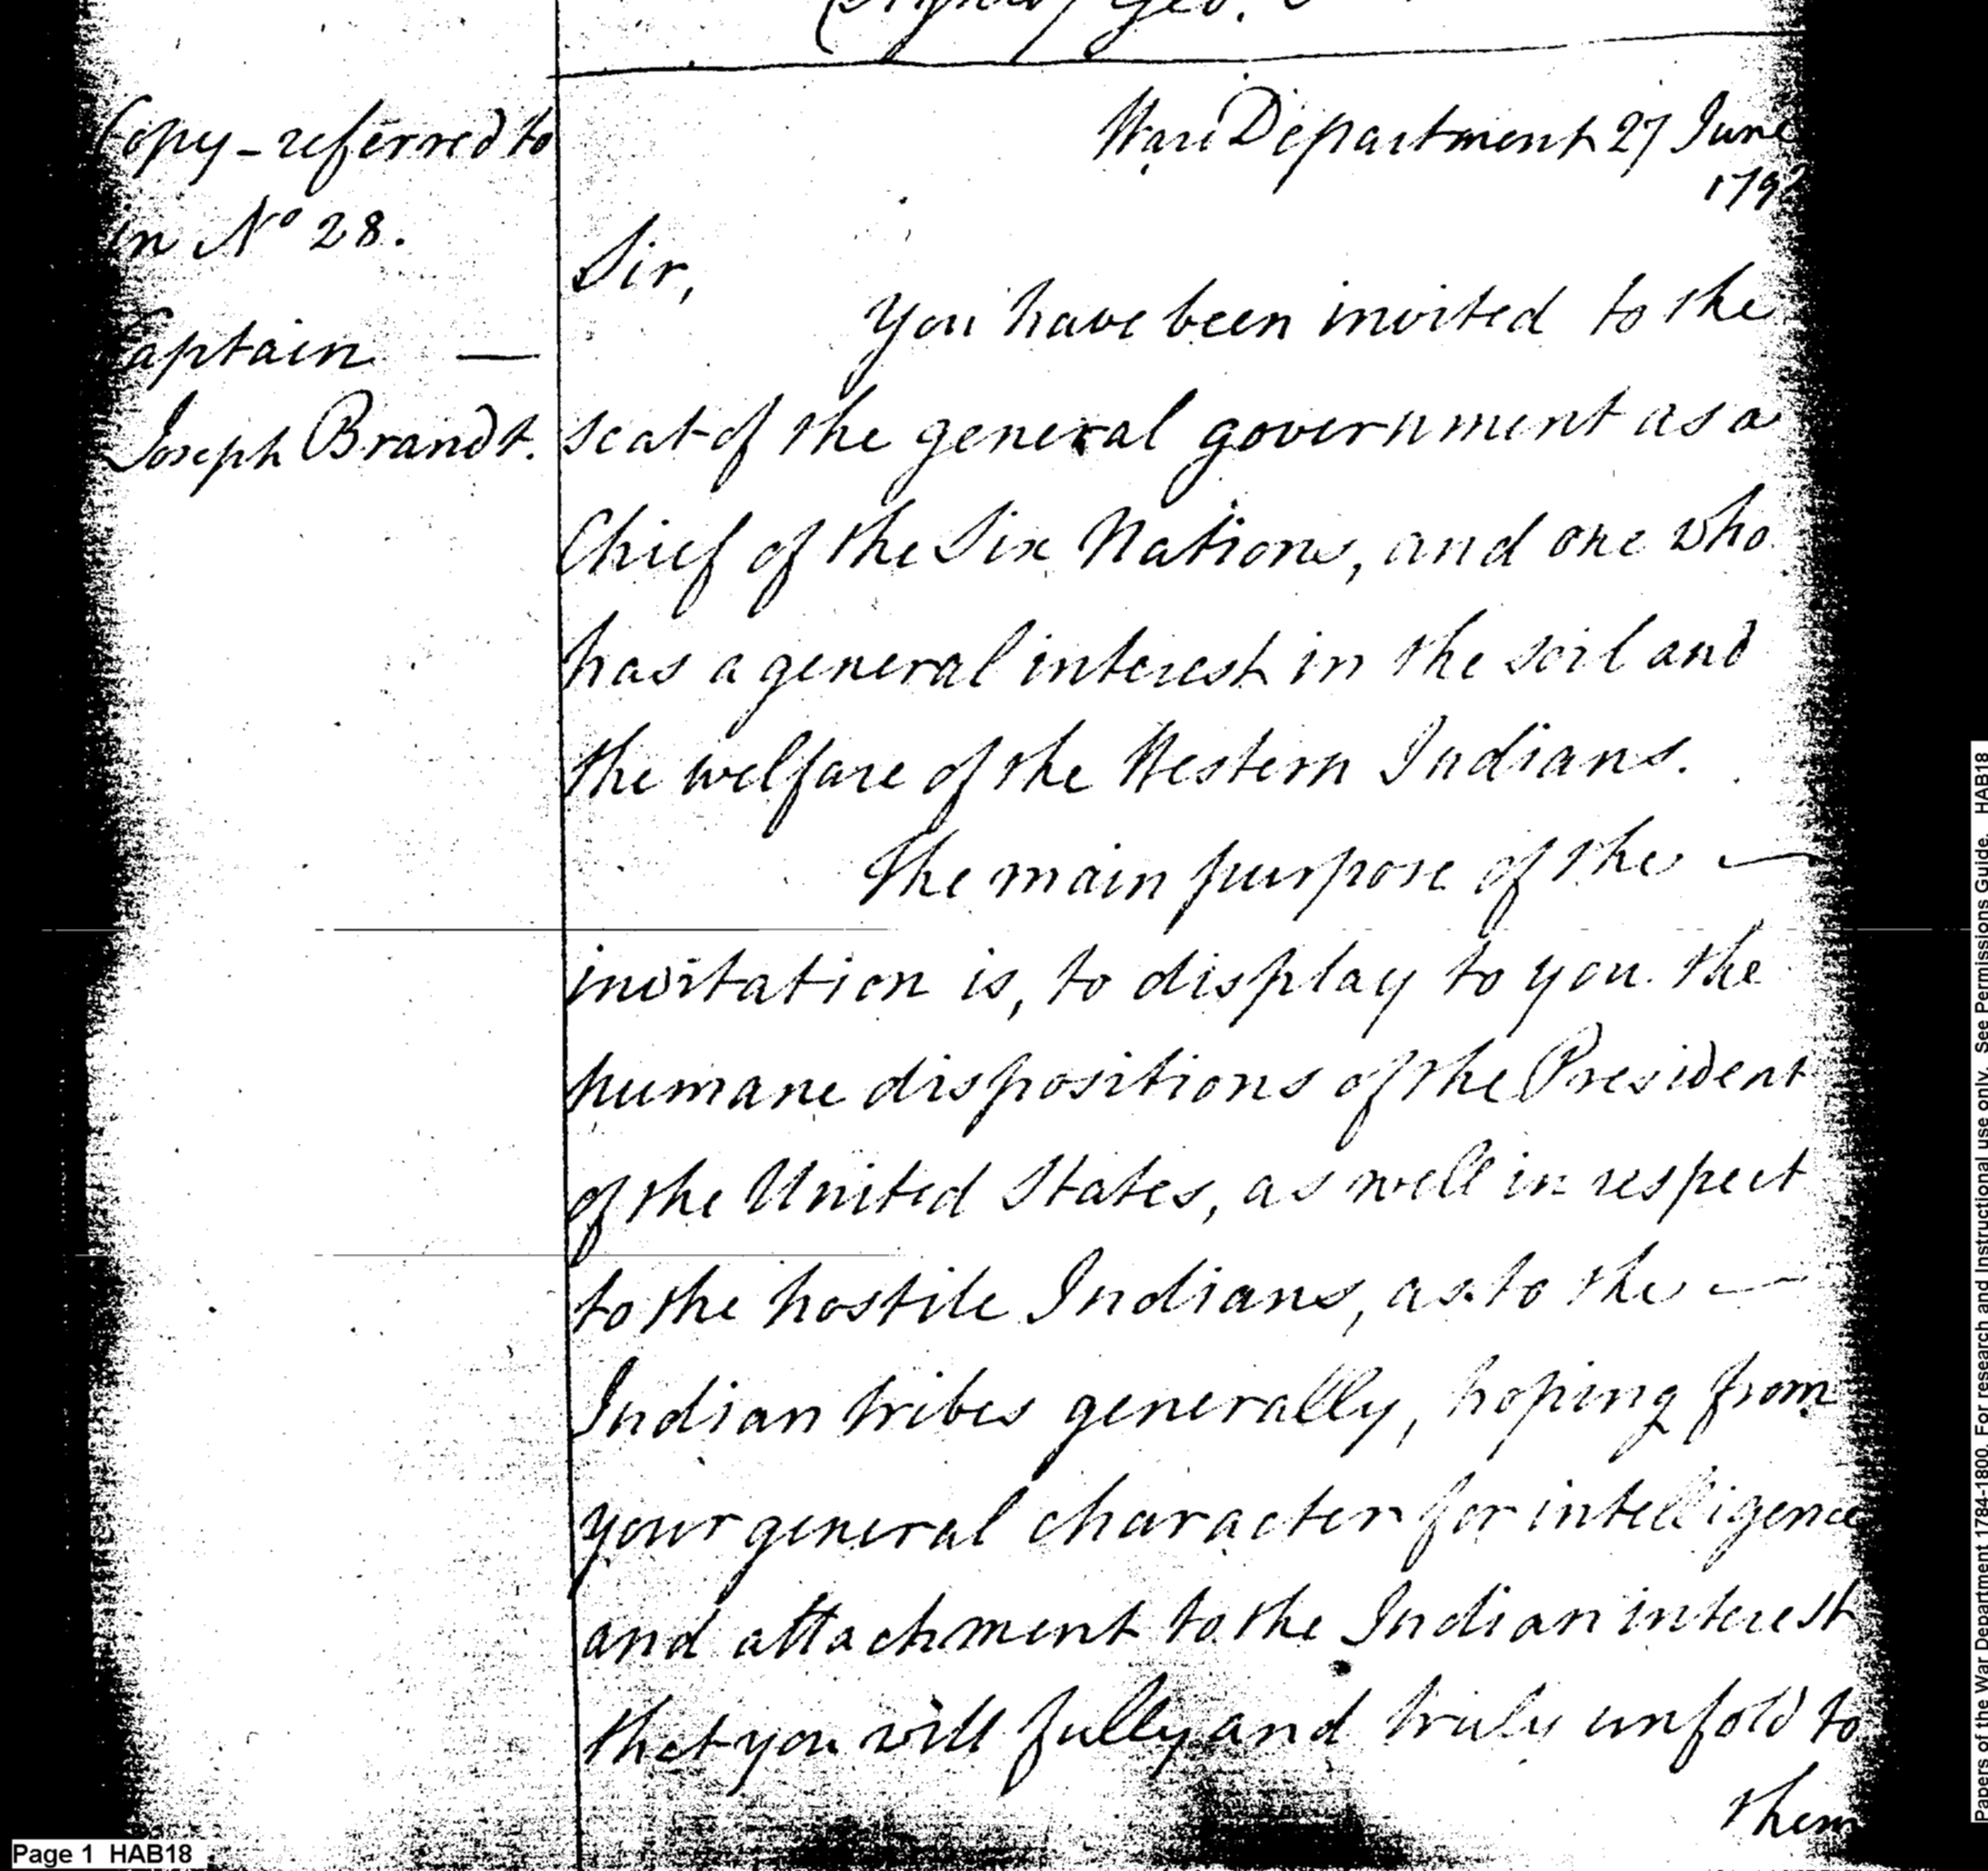 (Signed) Geo.
Copy - referred to
in No 28.
Captain —
Joseph Brandt.
War Department 27 June
179
Sir,
You have been invited to the
seat of the general government as a
Chief of the Six Nations, and one who
has a general interest in the soil and
the welfare of the Western Indians.
The main purpose of the —
invitation is, to display to you the
humane dispositions of the President
of the United States, as well in respect
to the hostile Indians, as to the —
Indian tribes generally, hoping from
your general character for intelligence
and attachment to the Indian interest
that you will fully and truly unfold to
them
Page 1 HAB18
Papers of the War Department 1784-1800. For research and Instructional use only. See Permissions Guide. HAB18